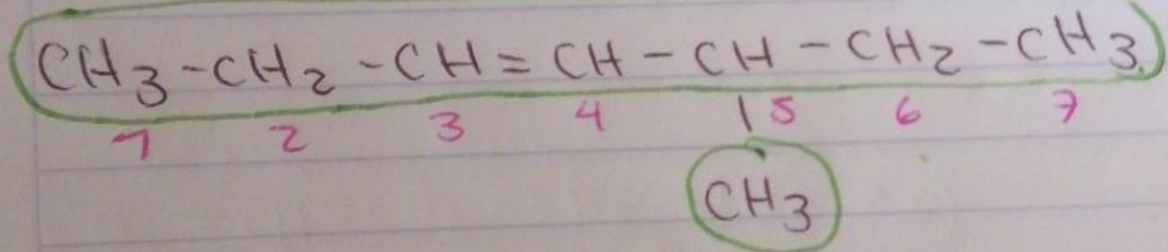 CH3-CH2-CH=CH-CH-CH2-CH3
1 2 3 4 | 5 6 7
CH3